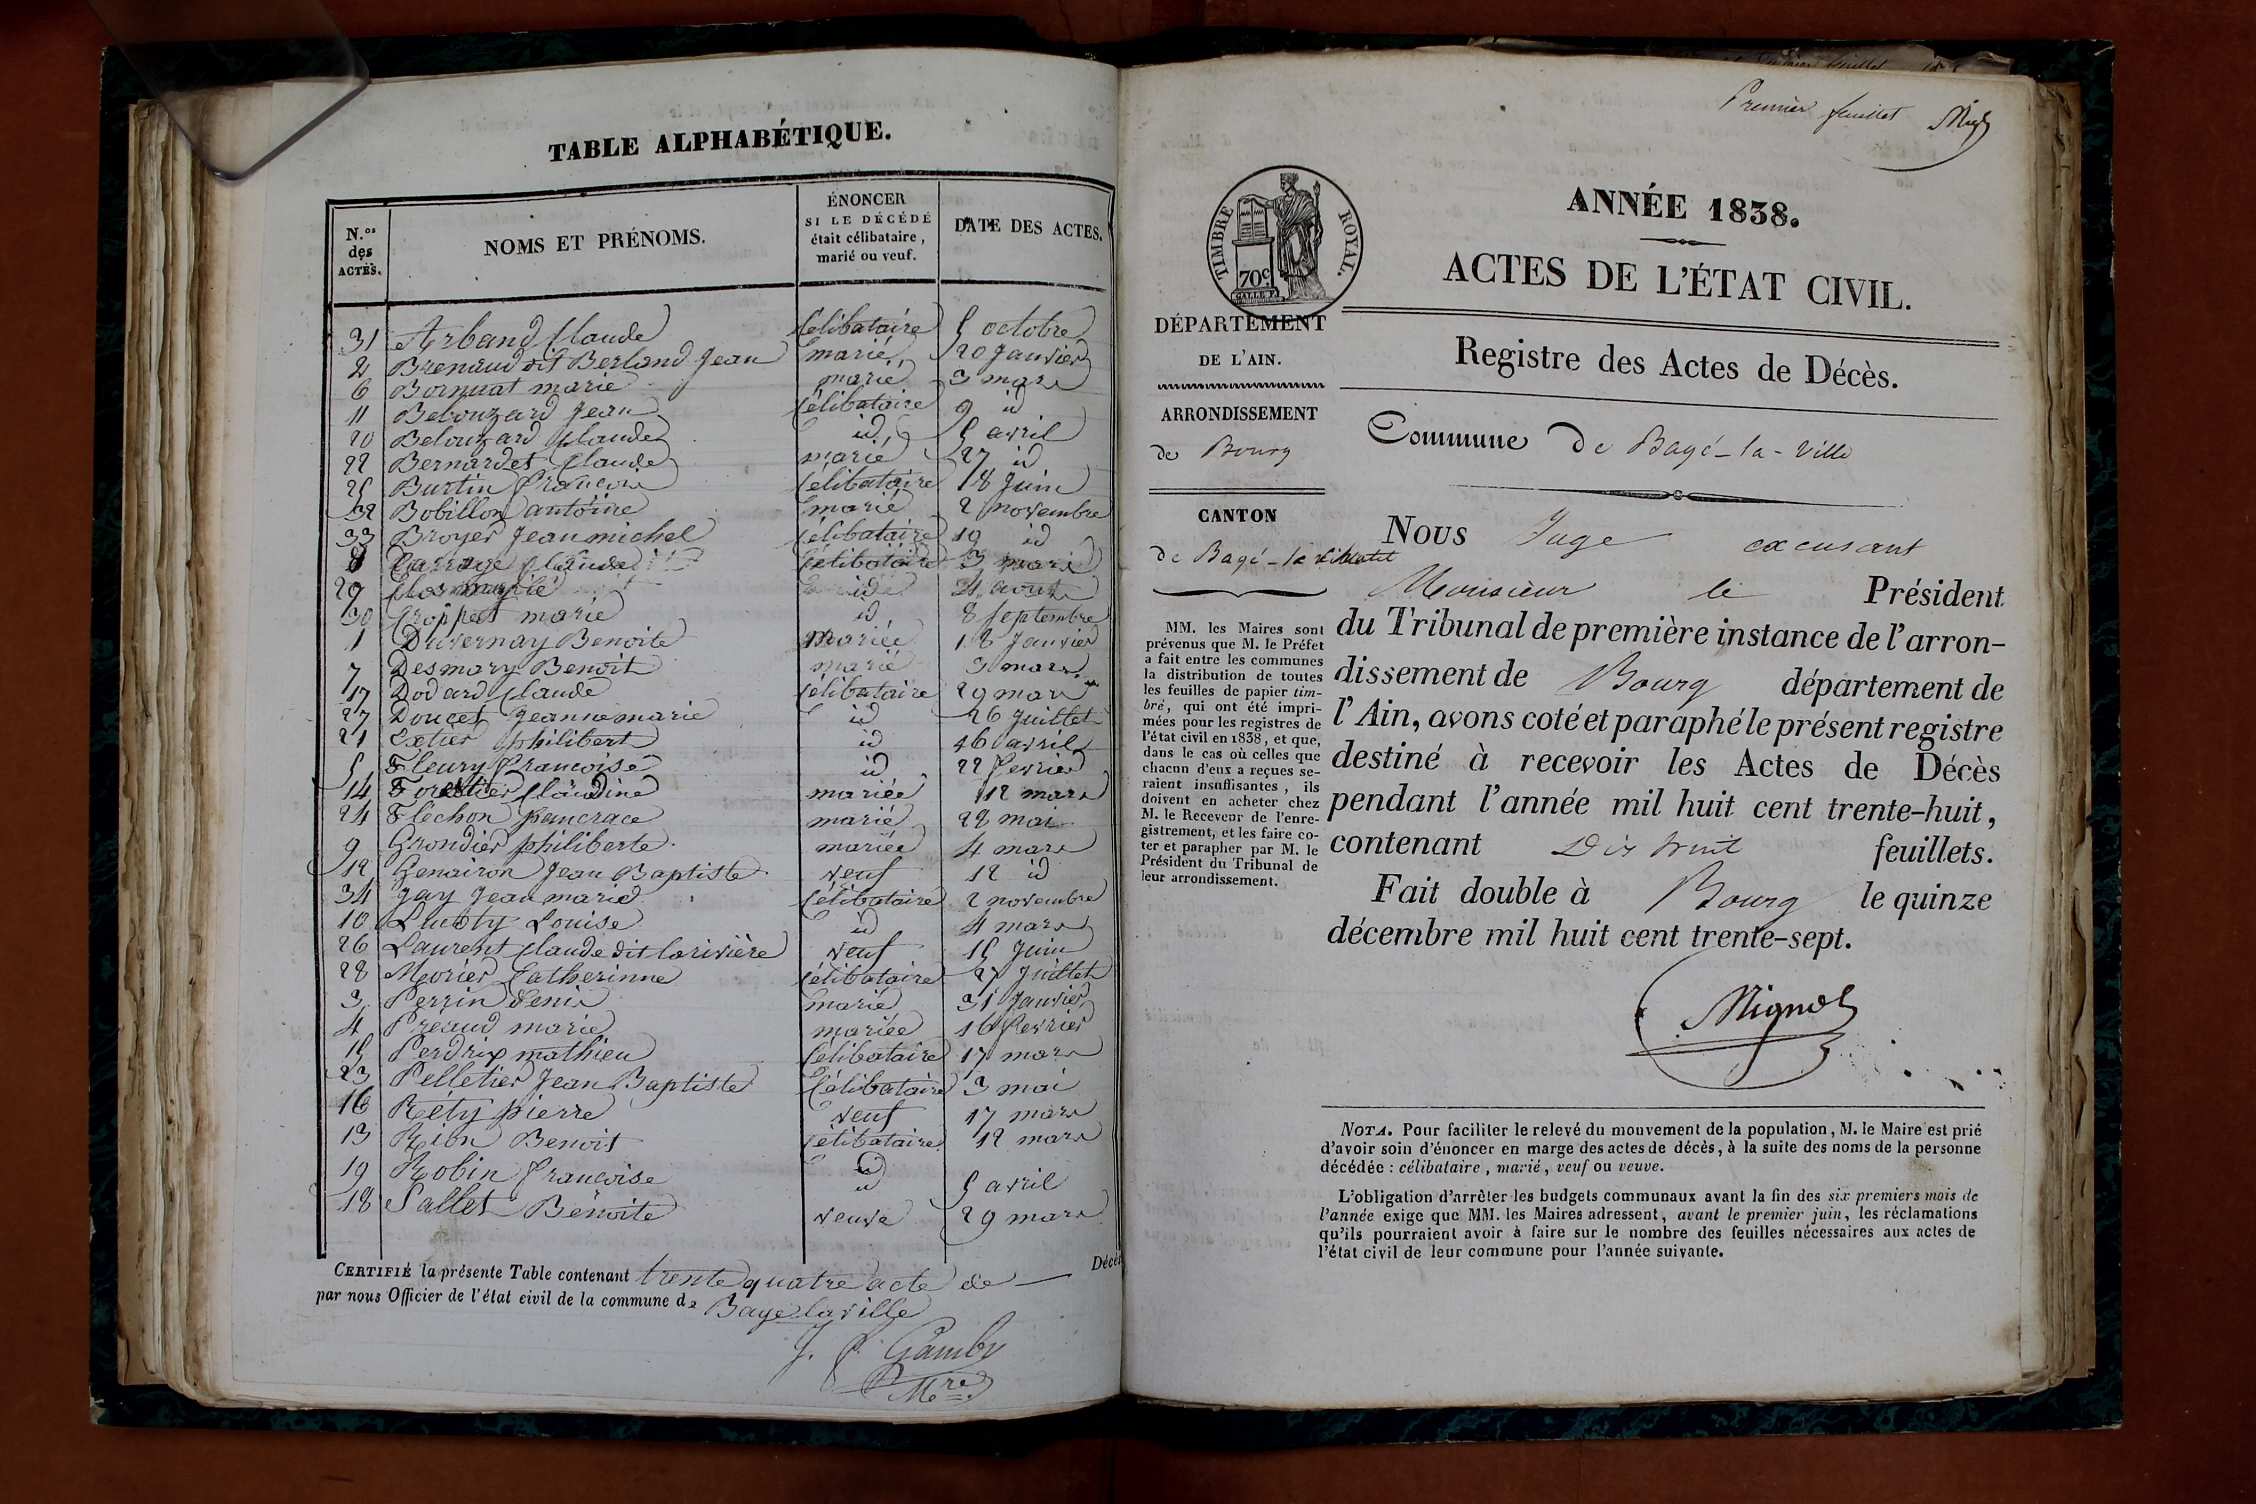 TABLE ALPHABÉTIQUE.
N.os des ACTES.
NOMS ET PRÉNOMS.
ÉNONCER
SI LE DÉCÉDÉ
était célibataire,
marié ou veuf.
DATE DES ACTES.
31 Arband Claude Célibataire 5 octobre
2 Brenaud dit Berland Jean marié 20 Janvier
6 Bornuat marie marié 3 mars
11 Belouzard Jean Célibataire 9 id
20 Belouzard Claude id 5 avril
22 Bernardet Claude marié 27 id
25 Burtin François Célibataire 18 Juin
32 Bobillon antoine marié 2 novembre
33 Broyer Jean michel Célibataire 19 id
8 Carrage Claude Célibataire 3 mars
29 Clos marie id 21 août
30 Croppet marie id 8 septembre
1 Duvernay Benoite mariée 18 Janvier
7 Desmary Benoit marié 3 mars
17 Dodard Claude Célibataire 29 mars
27 Doucet Jeanne marie id 26 Juillet
21 Extier philibert id 16 avril
5 Fleury Francoise id 22 fevrier
14 Forestier Claudine mariée 12 mars
24 Flechon pancrace marié 22 mai
9 Grondier philiberte mariée 4 mars
12 Genairon Jean Baptiste veuf 12 id
34 Jay Jean marie Célibataire 2 novembre
10 Loubly Louise id 4 mars
26 Laurent Claude dit larivière veuf 15 Juin
28 Morier Catherinne Célibataire 27 Juillet
3 Perrin Denis marié 31 Janvier
4 Préaud marie mariée 16 fevrier
15 Perdrix mathieu Célibataire 17 mars
23 Pelletier Jean Baptiste Célibataire 3 mai
16 Réty pierre veuf 17 mars
13 Rion Benoit Célibataire 12 mars
19 Robin francoise id 5 avril
18 Sallet Benoite veuve 29 mars
CERTIFIÉ la présente Table contenant trente quatre acte de Décès
par nous Officier de l'état civil de la commune de Bagé laville
J. C. Gamby
Mre
Premier feuillet Mig
TIMBRE ROYAL.
70c
ANNÉE 1838.
ACTES DE L'ÉTAT CIVIL.
Registre des Actes de Décès.
Commune de Bagé-la-Ville
DÉPARTEMENT
DE L'AIN.
ARRONDISSEMENT
de Bourg
CANTON
de Bagé-le-chatel
MM. les Maires sont
prévenus que M. le Préfet
a fait entre les communes
la distribution de toutes
les feuilles de papier tim-
bré, qui ont été impri-
mées pour les registres de
l'état civil en 1838, et que,
dans le cas où celles que
chacun d'eux a reçues se-
raient insuffisantes, ils
doivent en acheter chez
M. le Receveur de l'enre-
gistrement, et les faire co-
ter et parapher par M. le
Président du Tribunal de
leur arrondissement.
Nous Juge excusant
Monsieur le Président
du Tribunal de première instance de l'arron-
dissement de Bourg département de
l'Ain, avons coté et paraphé le présent registre
destiné à recevoir les Actes de Décès
pendant l'année mil huit cent trente-huit,
contenant Dix huit feuillets.
Fait double à Bourg le quinze
décembre mil huit cent trente-sept.
Mignot
NOTA. Pour faciliter le relevé du mouvement de la population, M. le Maire est prié
d'avoir soin d'énoncer en marge des actes de décès, à la suite des noms de la personne
décédée : célibataire, marié, veuf ou veuve.
L'obligation d'arrêter les budgets communaux avant la fin des six premiers mois de
l'année exige que MM. les Maires adressent, avant le premier juin, les réclamations
qu'ils pourraient avoir à faire sur le nombre des feuilles nécessaires aux actes de
l'état civil de leur commune pour l'année suivante.